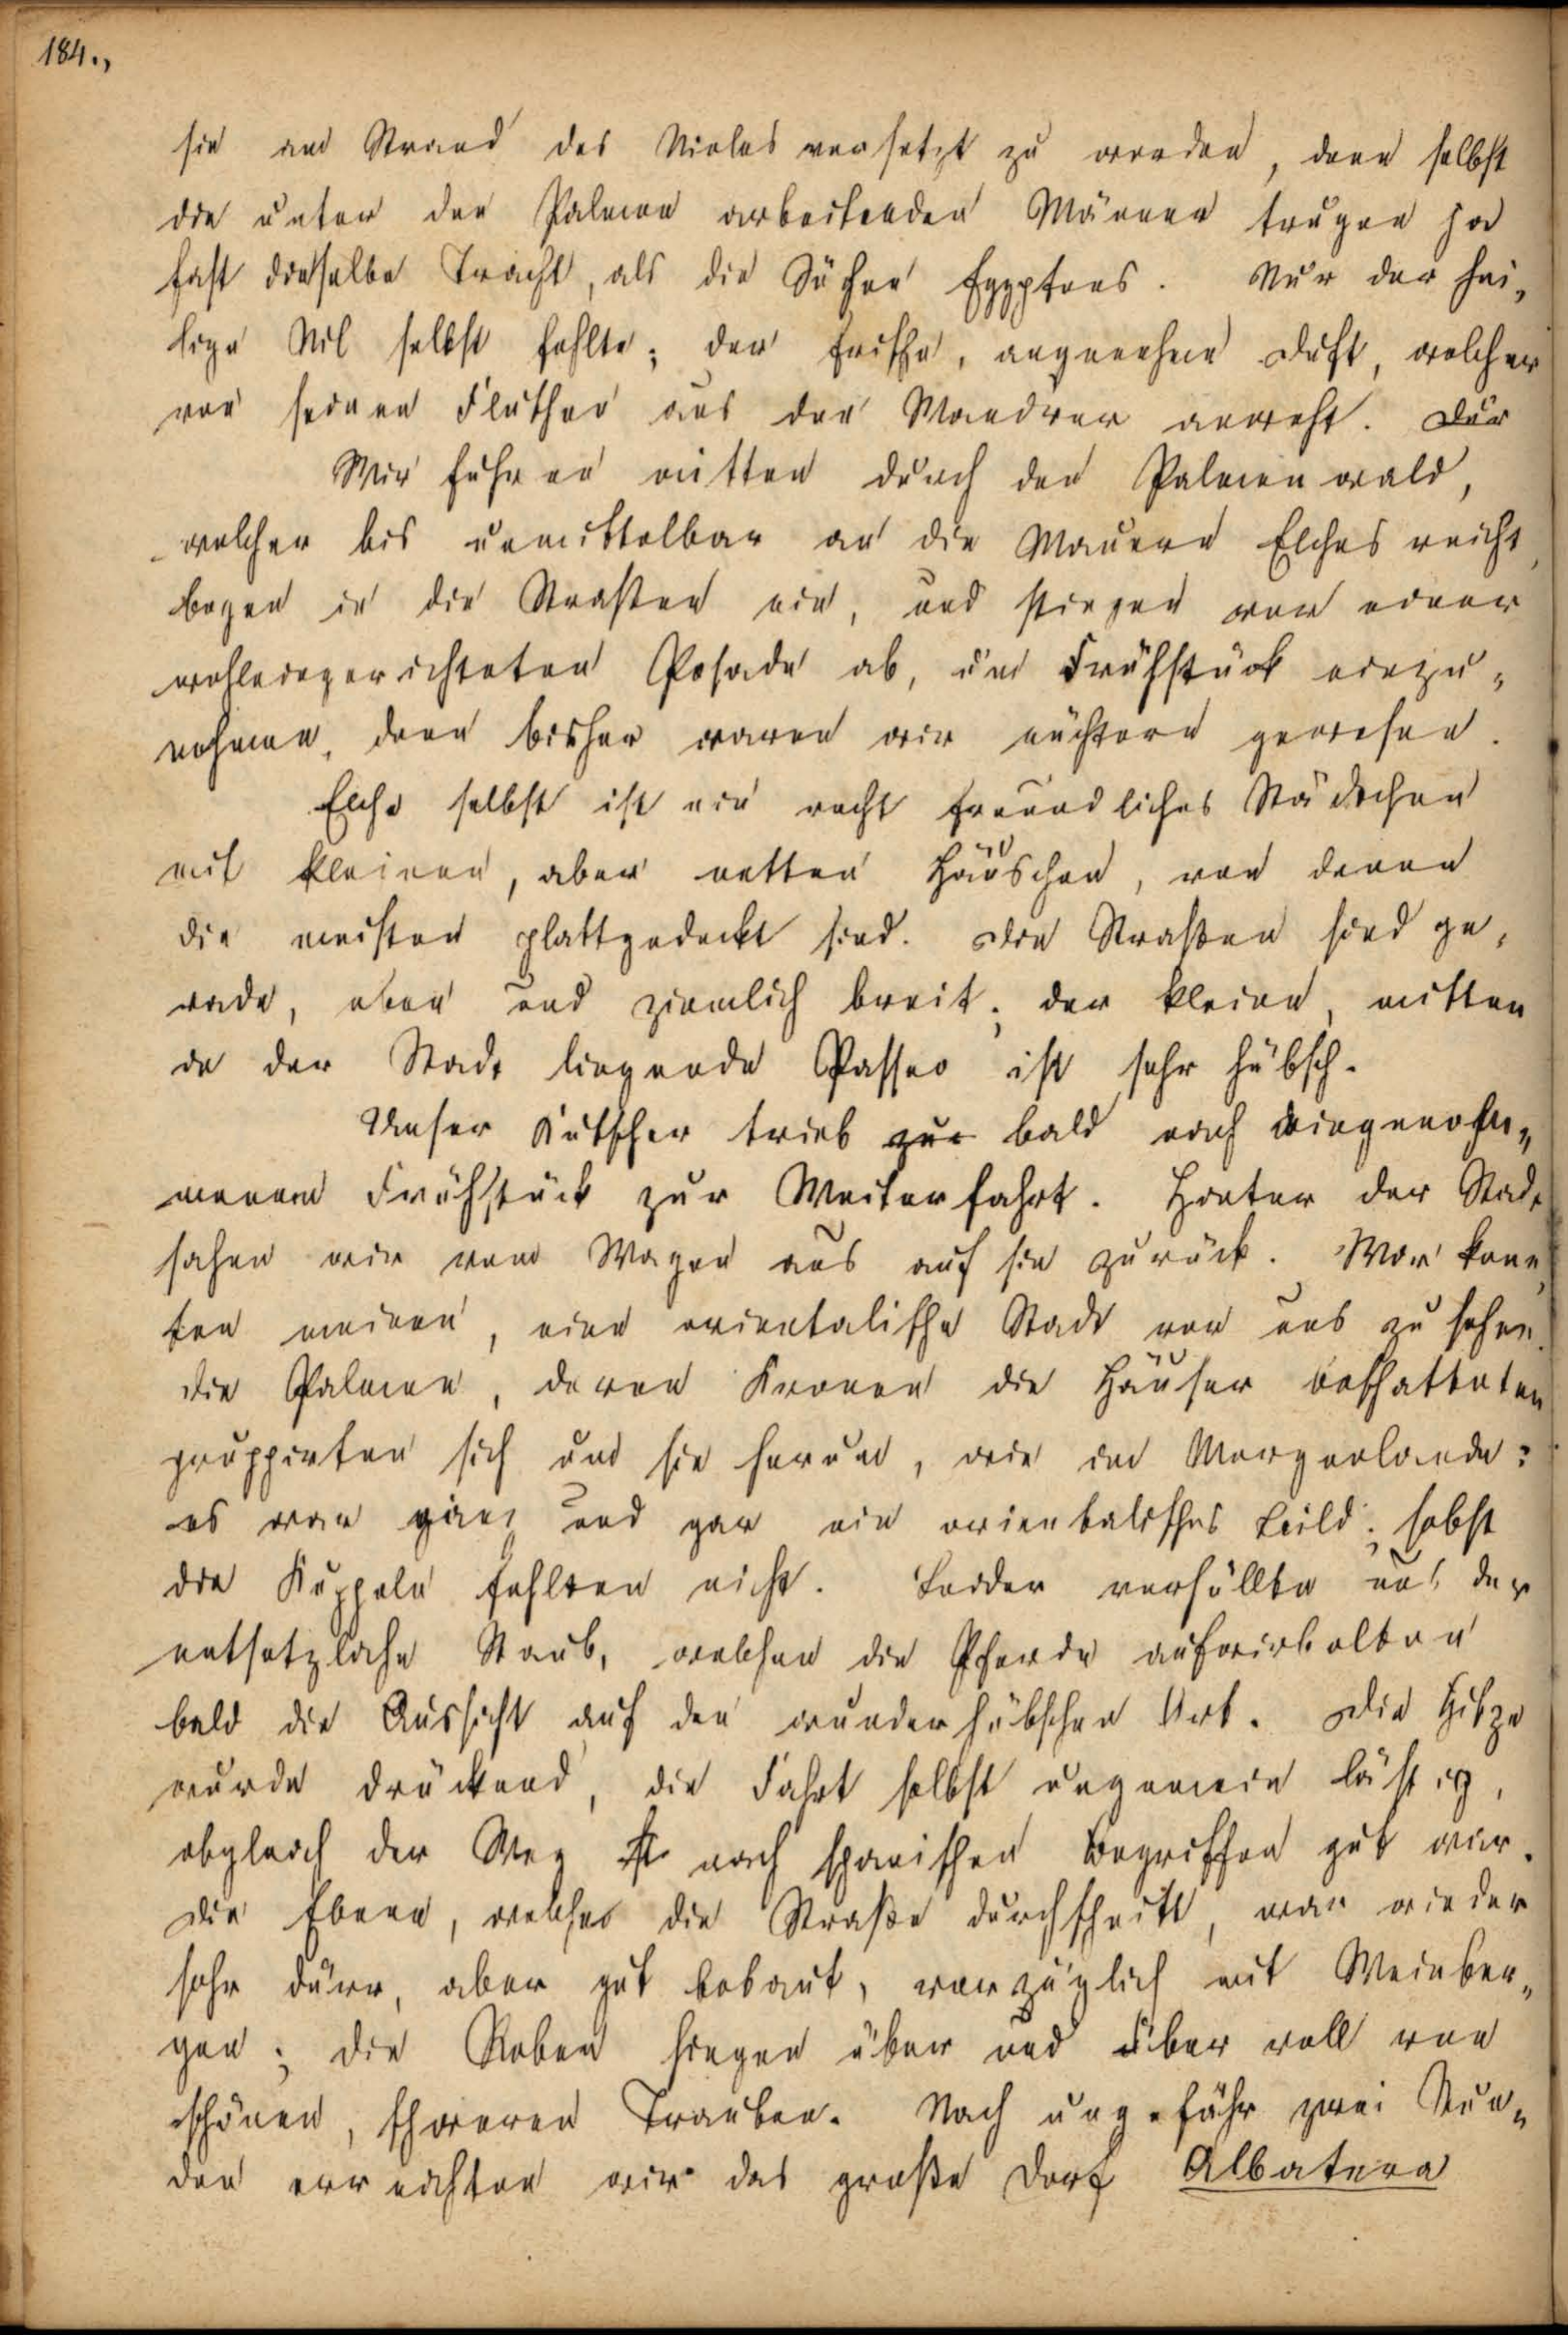 184.,
sie am Strand des Nieles versetzt zu werden, denn selbst
die unter den Palmen arbeitenden Männer trugen ja
fast dieselbe Tracht, als die Söhne Egyptens. Nur der hei„
lige Nil selbst fehlte; der frische, angenehme Duft, welcher
von seinen Fluthen aus den Wandrer anweht. Dur
Wir fuhren mitten durch den Palmenwald,
welcher bis unmittelbar an die Mauern Elches reicht,
bogen in die Straßen ein, und stiegen vor einer
wohleingerichteten Posade ab, um Frühstück einzu„
nehmen, denn bisher waren wir nüchtern gewesen.
Elche selbst ist ein recht freundliches Städtchen
mit kleinen, aber netten Häuschen, von denen
die meisten plattgedeckt sind. Die Straßen sind ge„
rade, eben und ziemlich breit; der kleine, mitten
in der Stadt liegende Passeo ist sehr hübsch.
Unser Kutscher trieb zur bald nach eingenom„
menem Frühstück zur Weiterfahrt. Hinter der Stadt
sahen wir vom Wagen aus auf sie zurück. Wir konn„
ten meinen, eine orientalische Stadt vor uns zu sehen.
Die Palmen, deren Kronen die Häuser beschatteten
gruppirten sich um sie herum, wie im Morgenlande:
es war ganz und gar ein orientalisches Bild; selbst
die Kuppeln fehlten nicht. Leider verhüllte uns der
entsetzliche Staub, welchen die Pferde aufwirbelten
bald die Aussicht auf den wunderhübschen Ort. Die Hitze
wurde drückend, die Fahrt selbst ungemein lästig,
obgleich der Weg nach spanischen Begriffen gut war.
Die Ebene, welche die Straße durchschnitt, war wieder
sehr dürr, aber gut bebaut, vorzüglich mit Weinber„
gen; die Reben hingen über und über voll von
schönen, schweren Trauben. Nach ungefähr zwei Stun„
den erreichten wir das große Dorf Albatera